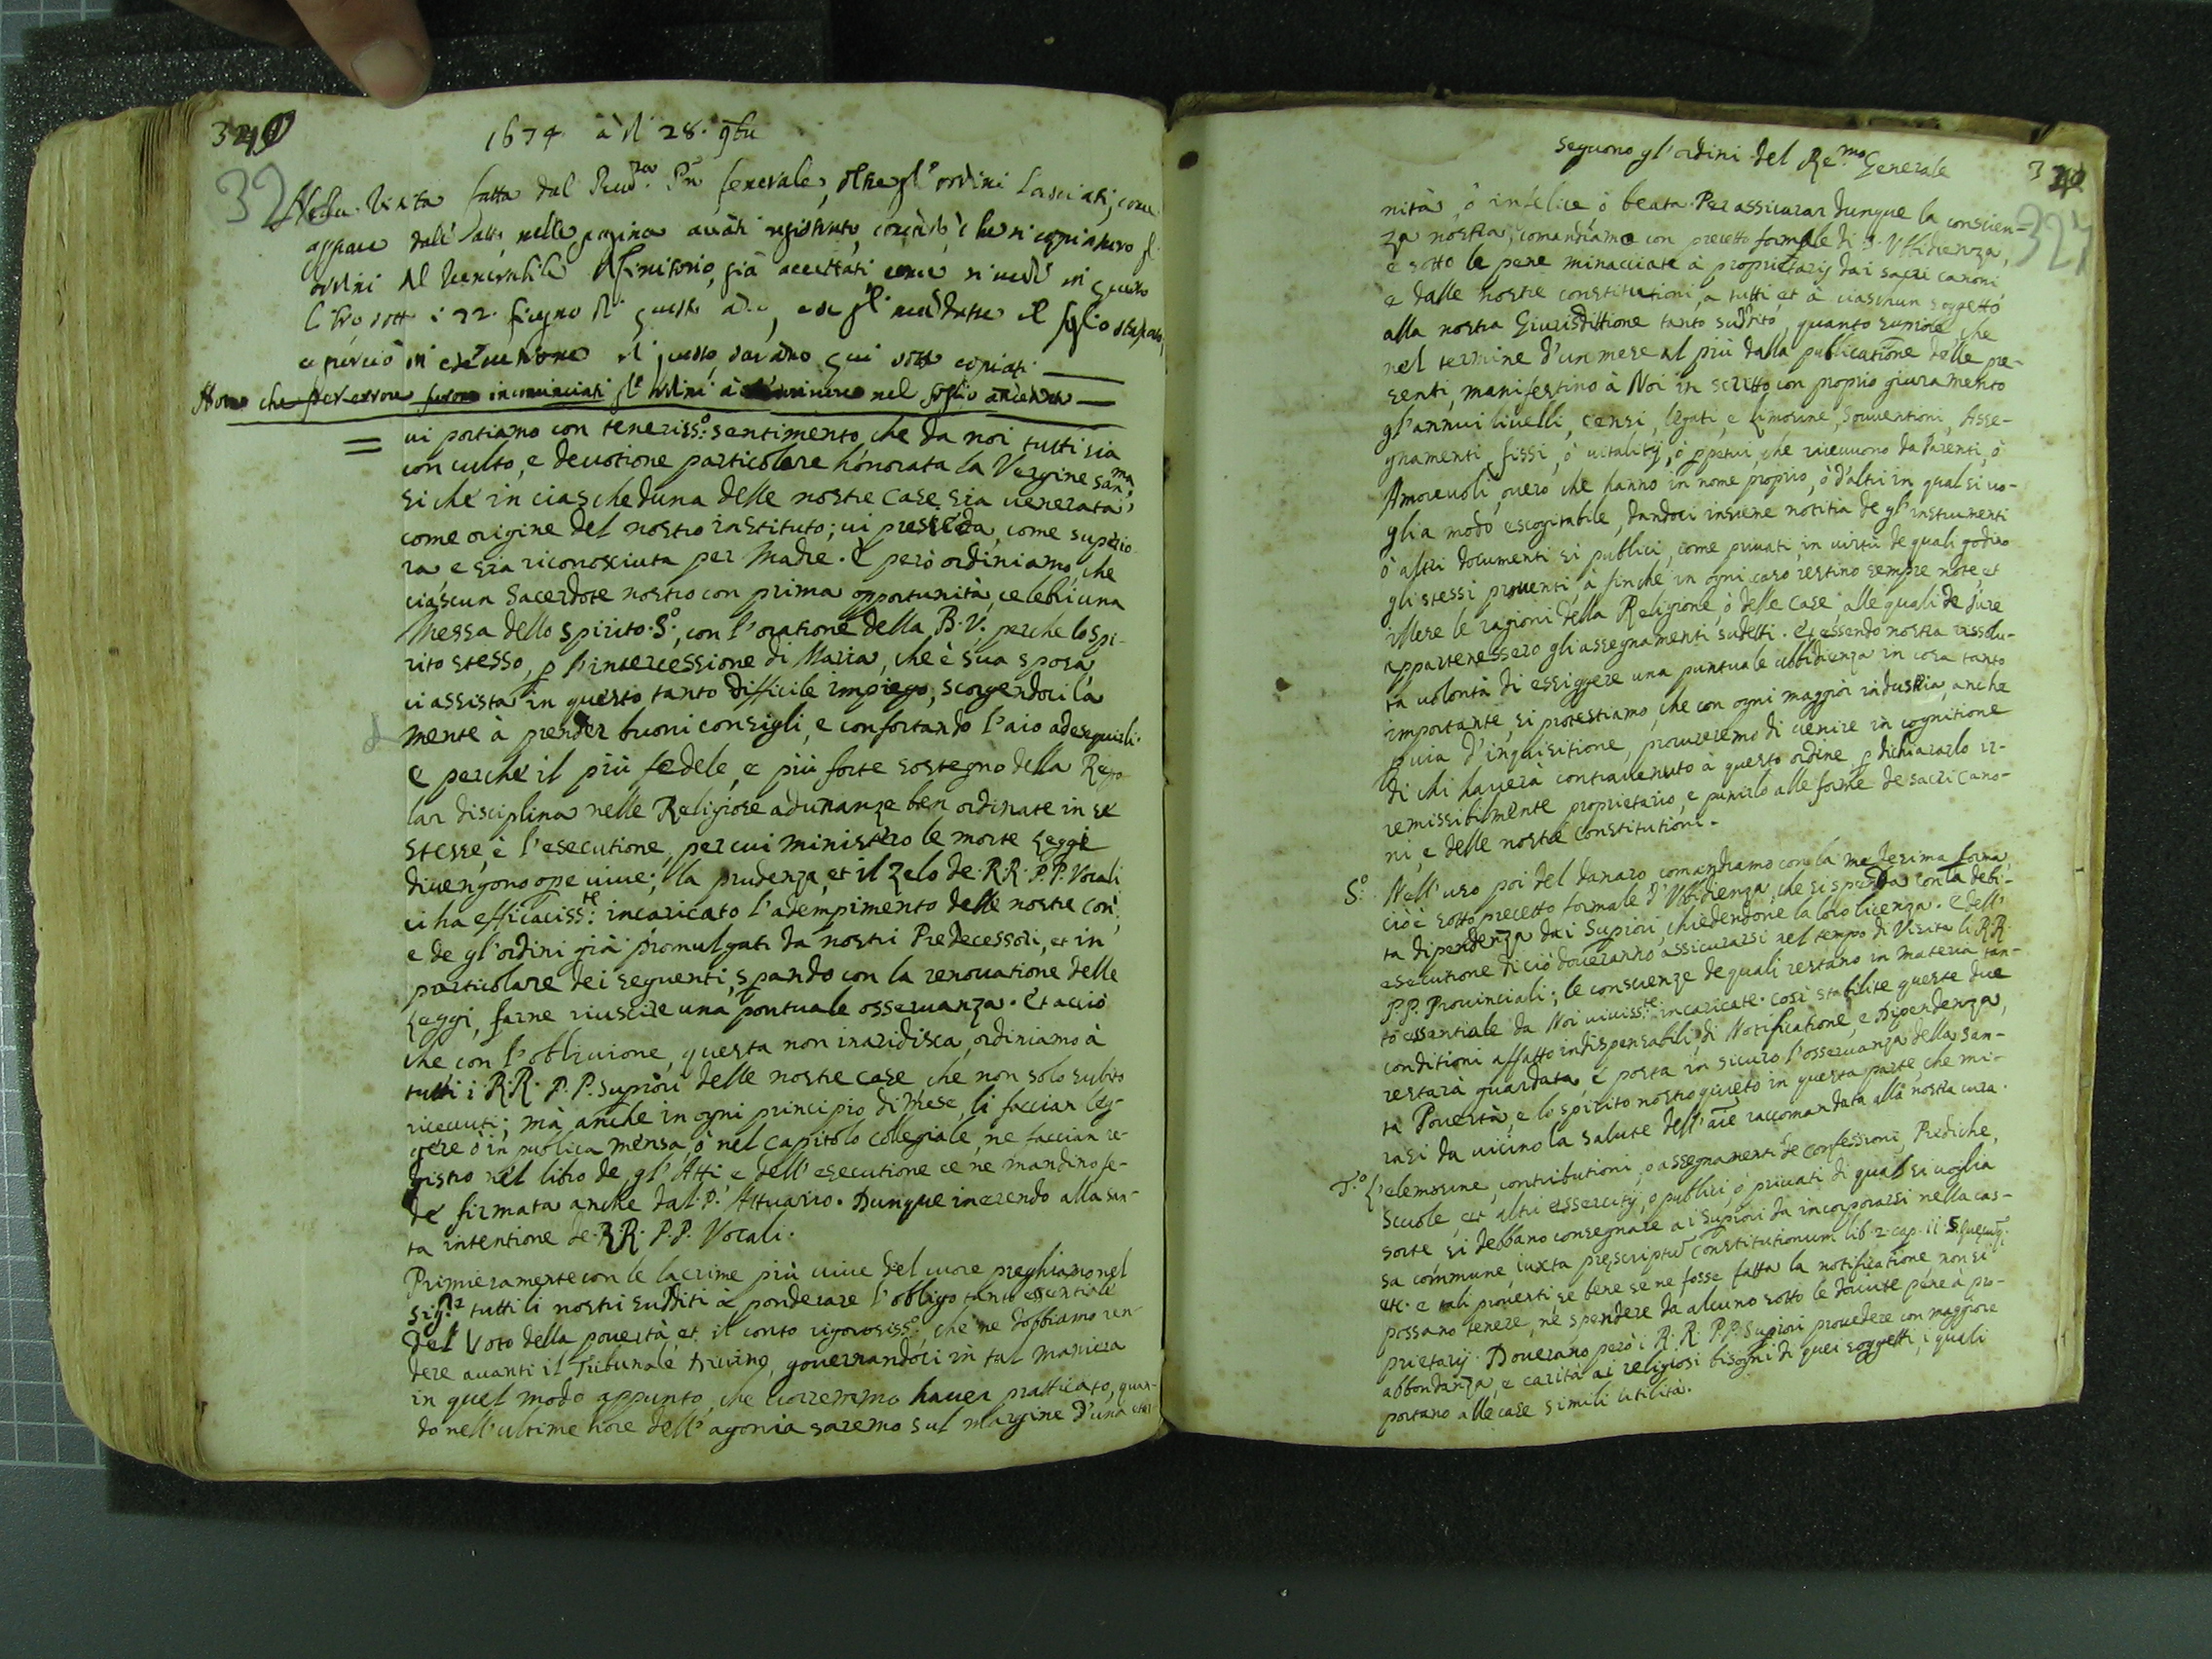 1674 à dì 28. 9bre
Nella Visita fatta dal Generale, oltre gl'ordini lasciati, come
appare dall'atto nella pagina avanti registrato, che si copiassero gl'
ordini del Venerabile Definitorio, già accettati come si vede in questo
libro sotto i 22 Giugno di questo
e perciò in essecutione di questo, saranno qui sotto copiati
che per errore furono incominciati gl'ordini à nel foglio
= ui portiamo con teneriss.o sentimento, che da noi tutti sia
con culto, e deuotione particolare honorata la Vergine San.ma,
si che in ciascheduna delle nostre Case sia uenerata,
come origine del nostro instituto; ui presieda, come superio
ra e sia riconosciuta per Madre. E però ordiniamo, che
ciascun Sacerdote nostro con prima opportunità, celebri una
Messa dello Spirito S.o, con l'oratione della B.V. perche lo Spi-
rito stesso, p l'intercessione di Maria, che è sua sposa
ci assista in questo tanto difficile impiego, scorgendoci la
mente à prender buoni consigli, e confortando l'aio ad eseguirli.
e perche il più fedele, e più forte sostegno della Rego
lar disciplina nelle Religiose adunanze ben ordinate in se
stesse, è l'esecutione, per cui ministero le morte Leggi
diuengono ope uiue; la prudenza, et il Zelo de R.R. P.P. Vocali
ci ha efficaciss.te incaricato l'adempimento delle nostre con̄i,
e de gl'ordini già promulgati da nostri Predecessori, et in
particolare dei seguenti, sperando con la renouatione delle
Leggi, farne riuscire una pontuale osseruanza. Et acciò
che con l'obliuione, questa non inaridisca, ordiniamo à
tutti i R.R. P.P. Supiori delle nostre case che non solo subito
riceuuti; mà anche in ogni principio di Mese, li faccian leg-
gere ò in publica mensa, ò nel capitolo collegiale, ne faccian re-
gistro nel libro de gl'Atti e dell'esecutione ce ne mandino fe-
de firmata anche dal P. Attuario. Dunque inerendo alla san-
ta intentione de R.R. P.P. Vocali.
Primieramente con le lacrime più uiue del cuore preghiamo nel
Sig.re tutti li nostri sudditi à ponderare l'obligo tanto essentiale
del Voto della pouertà et il conto rigorosiss.o, che ne dobbiamo ren-
dere auanti il Tribunale Diuino, gouernandoci in tal maniera
in quel modo appunto, che uorremmo hauer pratticato, quan-
do nell'ultime hore dell'agonia saremo sul margine d'una eter-
Seguono gl'ordini del Re.mo Generale
nità, ò infelice ò beata. Per assicurar dunque la conscien=
za nostra, comandiamo con precetto formale di S. Vbbidienza,
e sotto le pene minacciate à proprietarij dai sacri canoni
e dalle nostre constitutioni, a tutti, et à ciascun soggetto
alla nostra Giurisdittione tanto suddito, quanto supiore, che
nel termine d'un mese al più dalla publicatione delle pre-
senti, manifestino à Noi in scritto con proprio giuramento
gl'annui liuelli, censi, legati, e limosine, Souuentioni, Asse-
gnamenti fissi, ò uitalitij, ò ppetui, che riceuuono da Parenti, ò
Amoreuoli, ouero che hanno in nome proprio, ò d'altri in qual si uo-
glia modo escogitabile, dandoci insieme notitia de gl'instrumenti
ò altri documenti si publici, come priuati, in uirtù de quali godino
gli stessi prouenti, à finche in ogni caso restino sempre note, et
illese le ragioni della Religione, ò delle Case, alle quali de jure
appartenessero gli assegnamenti sudetti. Et essendo nostra rissolu-
ta uolontà di essiggere una puntuale ubbidienza in cosa tanto
importante, si protestiamo, che con ogni maggior industria, anche
p uia d'inquisitione, procureremo di uenire in cognitione
di chi hauerà contrauenuto à questo ordine, p dichiararlo ir-
remissibilmente proprietario, e punirlo alle forme de sacri Cano-
ni, e delle nostre constitutioni.
S.o Nell'uso poi del danaro comandiamo con la medesima forma,
cioè sotto precetto formale d'Vbbidienza, che si spenda con la debi-
ta dipendenza dai Supiori, chiedendone la loro licenza. e dell'
esecutione di ciò doueranno assicurarsi nel tempo di Visita li R.R.
P.P. Prouinciali; le conscienze de quali restano in materia tan-
to essentiale da Noi uiuiss.te incaricate. così stabilite queste due
conditioni affatto indispensabili, di Notificatione, e Dipendenza,
restarà guardata, e posta in sicuro l'osseruanza della San-
ta Pouertà, e lo spirito nostro quieto in questa parte, che mi-
rasi da uicino la salute dell'aīe raccomandata alla nostra cura.
T.o L'elemosine, contributioni, o assegnamenti de confessioni, Prediche,
Scuole, et altri essercitij, o publici, o priuati di qual si uoglia
sorte, si debbano consegnare a i Supiori da incorporarsi nella cas-
sa commune, iuxta prescriptū constitutionum lib. 2. cap. 11.
etc. e tali prouenti se bene se ne fosse fatta la notificatione non si
possano tenere, nè spendere da alcuno sotto le douute pene à pro-
prietarij. Doueranno però i R.R. P.P. Supiori prouedere con maggiore
abbondanza, e carità ai religiosi bisogni di quei soggetti, i quali
portano alle case simili utilità.